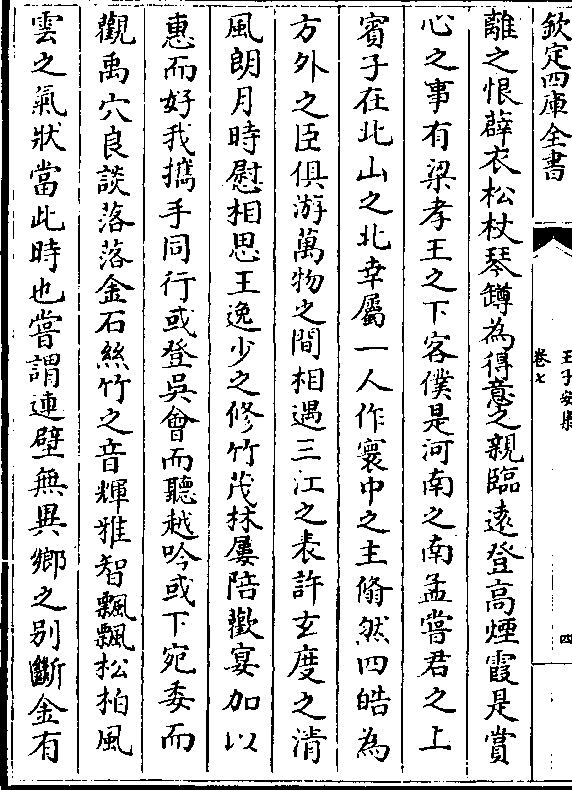 欽定四庫全書
王子安集
卷七
四
離之恨薜衣松杖琴罇為得意之親臨遠登高煙霞是賞
心之事有梁孝王之下客僕是河南之南孟嘗君之上
賓子在北山之北幸屬一人作寰中之主翛然四皓為
方外之臣俱游萬物之間相遇三江之表許玄度之清
風朗月時慰相思王逸少之修竹茂林屢陪歡宴加以
惠而好我攜手同行或登吳會而聽越吟或下宛委而
觀禹穴良談落落金石絲竹之音輝雅智飄飄松柏風
雲之氣狀當此時也嘗謂連璧無異鄉之别斷金有